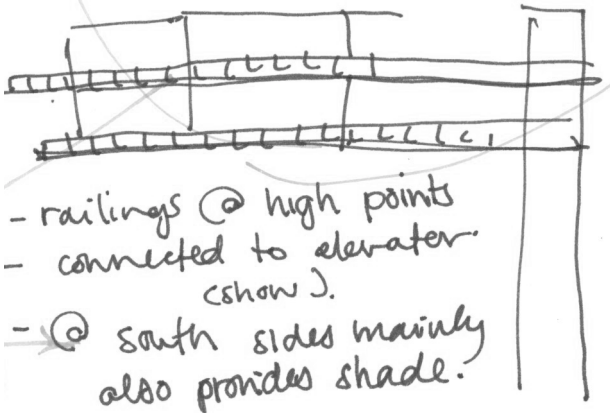 - railings @ high points
- connected to elevater.
(show).
- @ south sides mainly
also provides shade.